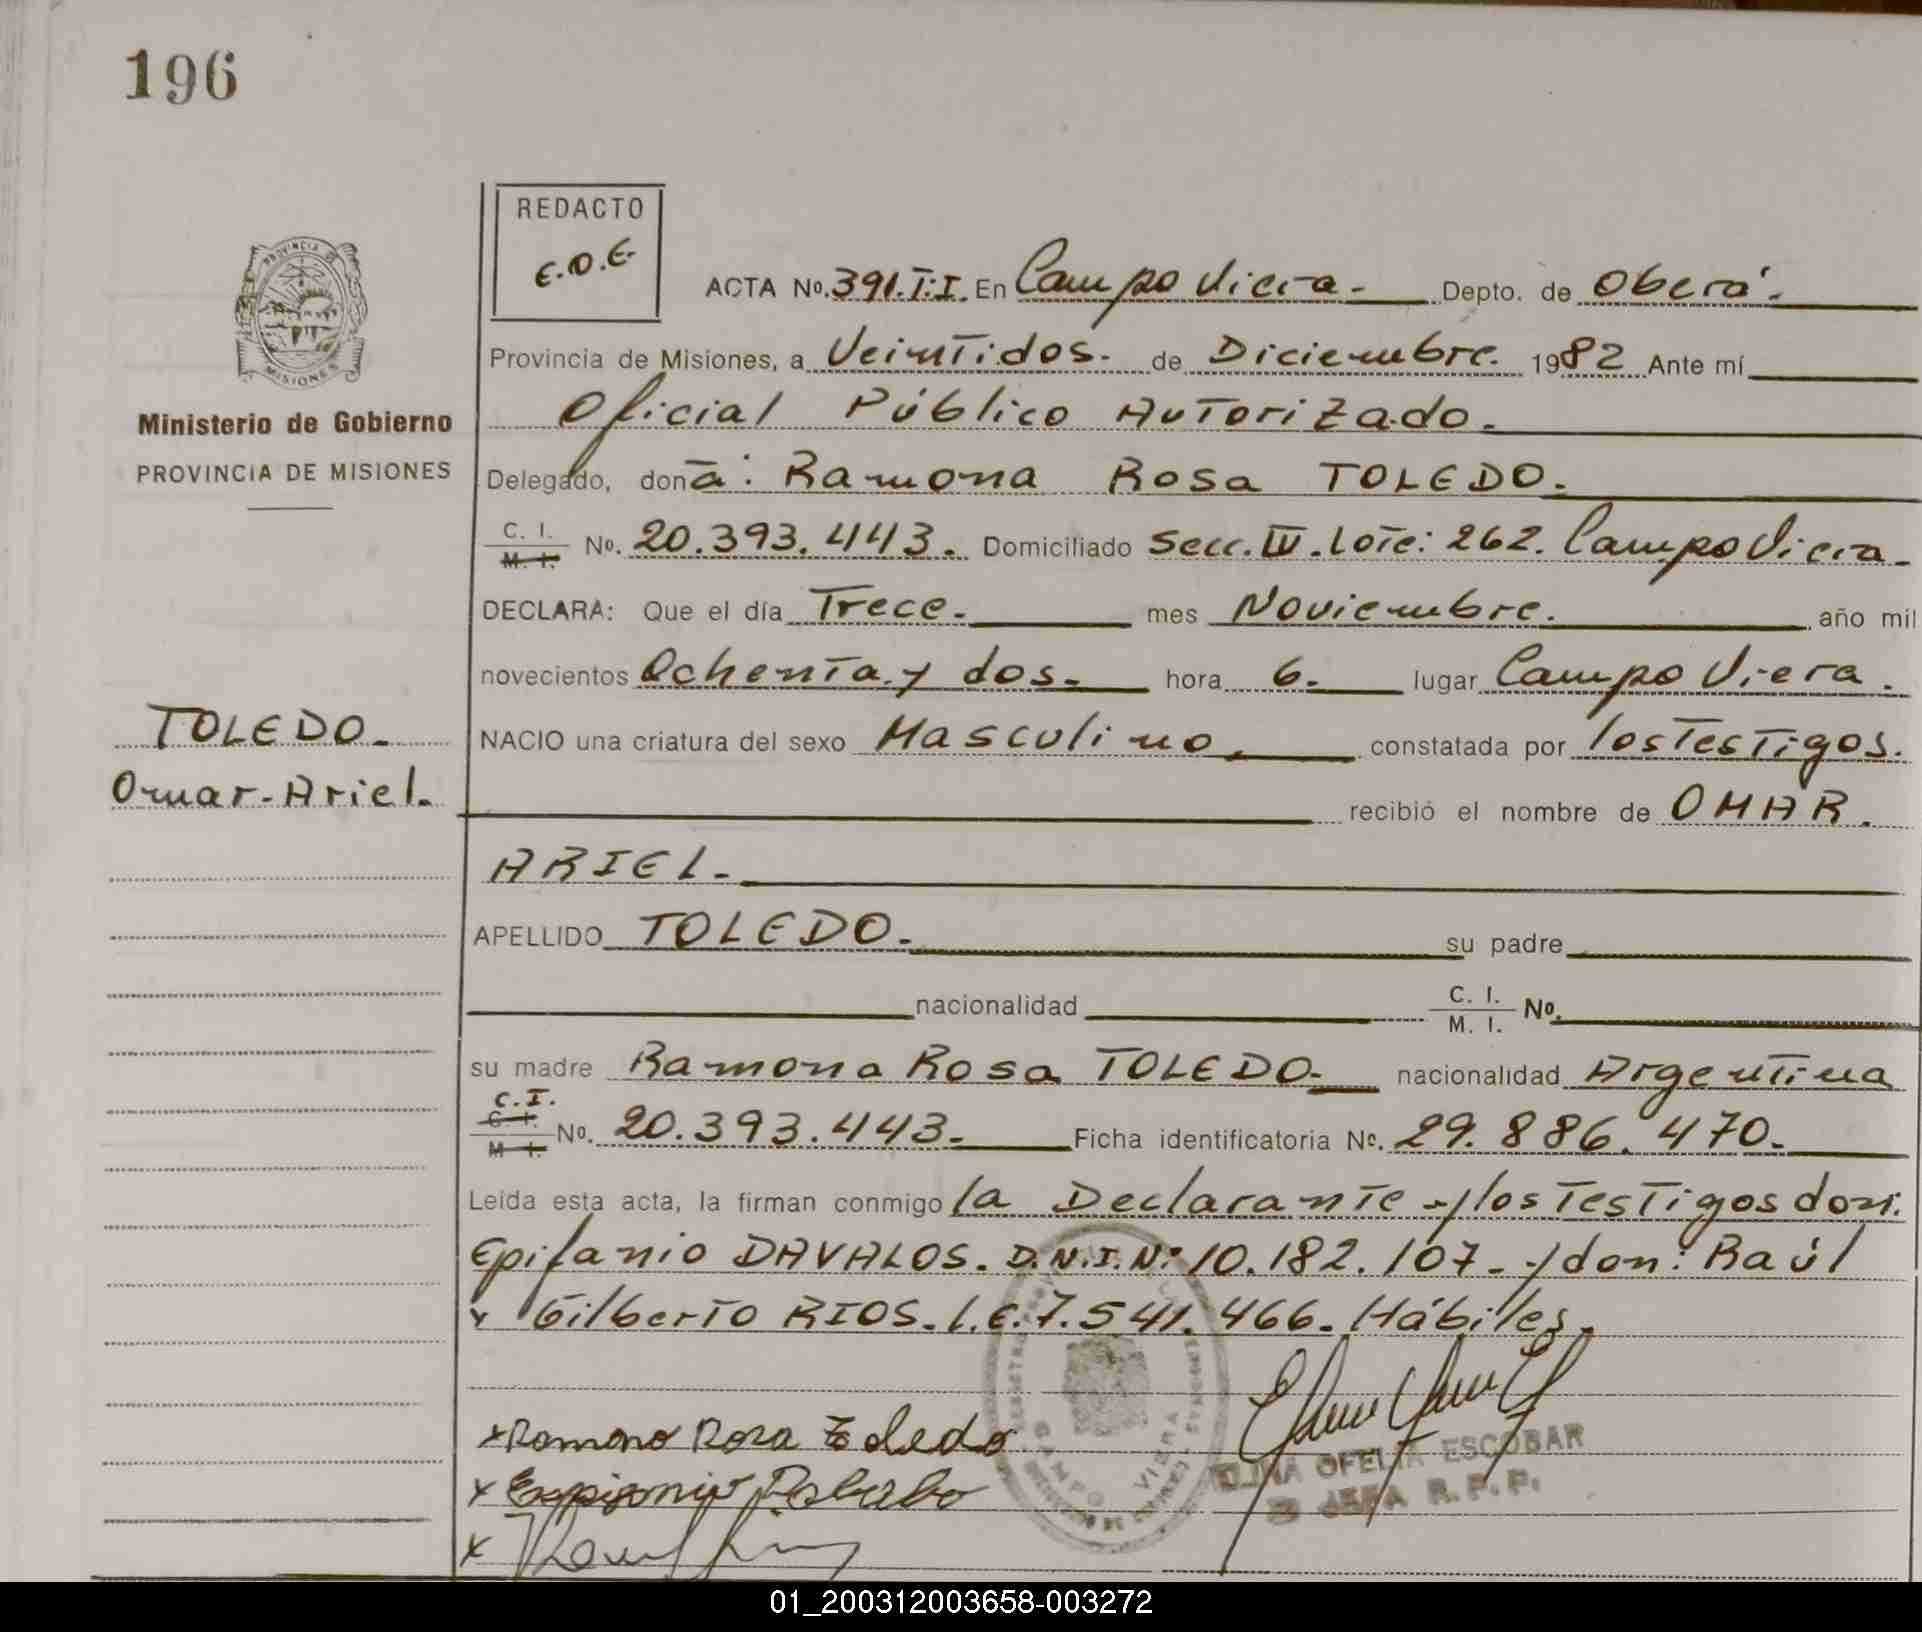 196
REDACTO
E.O.E.
ACTA Nº. 391.T:I. En Campo Viera.- Depto. de Oberá.-
Provincia de Misiones, a Veintidos. de Diciembre. 1982 Ante mí
Oficial Público Autorizado.
PROVINCIA DE
MISIONES
Ministerio de Gobierno
PROVINCIA DE MISIONES
Delegado, doña: Ramona Rosa TOLEDO.
C. I. M. I. Nº. 20.393.443. Domiciliado Secc. IV. Lote: 262. Campo Viera.
DECLARA: Que el día Trece. mes Noviembre. año mil
novecientos Ochenta y dos. hora 6. lugar Campo Viera.
TOLEDO.-
Omar-Ariel.
NACIO una criatura del sexo Masculino, constatada por los Testigos.
recibió el nombre de OMAR.
ARIEL.-
APELLIDO TOLEDO.- su padre
nacionalidad C. I. M. I. Nº.
su madre Ramona Rosa TOLEDO- nacionalidad Argentina
C.I. C. I. M. I. Nº. 20.393.443.- Ficha identificatoria Nº. 29.886.470.-
Leída esta acta, la firman conmigo la Declarante -y los Testigos don:
Epifanio DAVALOS. D.N.I.Nº 10.182.107.-y don: Raúl
Gilberto RIOS. L.E. 7.541.466. Hábiles.
x Ramona Rosa Toledo
CAMPO VIERA
ELINA OFELIA ESCOBAR
JEFA R.P.P.
x
x
01_200312003658-003272